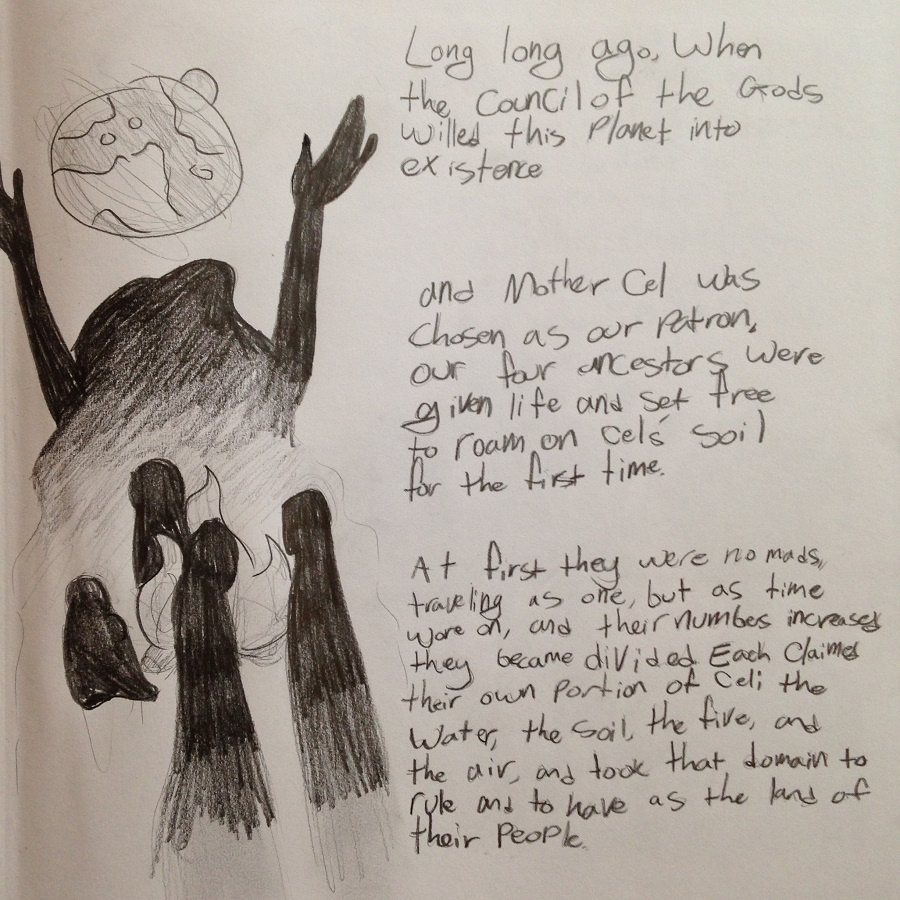 Long long ago, When
the Council of the Gods
willed this Planet into
existence
and Mother Cel was
Chosen as our Patron,
our four ancestors were
given life and set free
to roam on Cels' Soil
for the first time.
At first they were nomads,
traveling as one, but as time
wore on, and their numbes increased
they became divided. Each Claimed
their own Portion of Cel; the
Water, the Soil, the fire, and
the air, and took that domain to
rule and to have as the land of
their People.